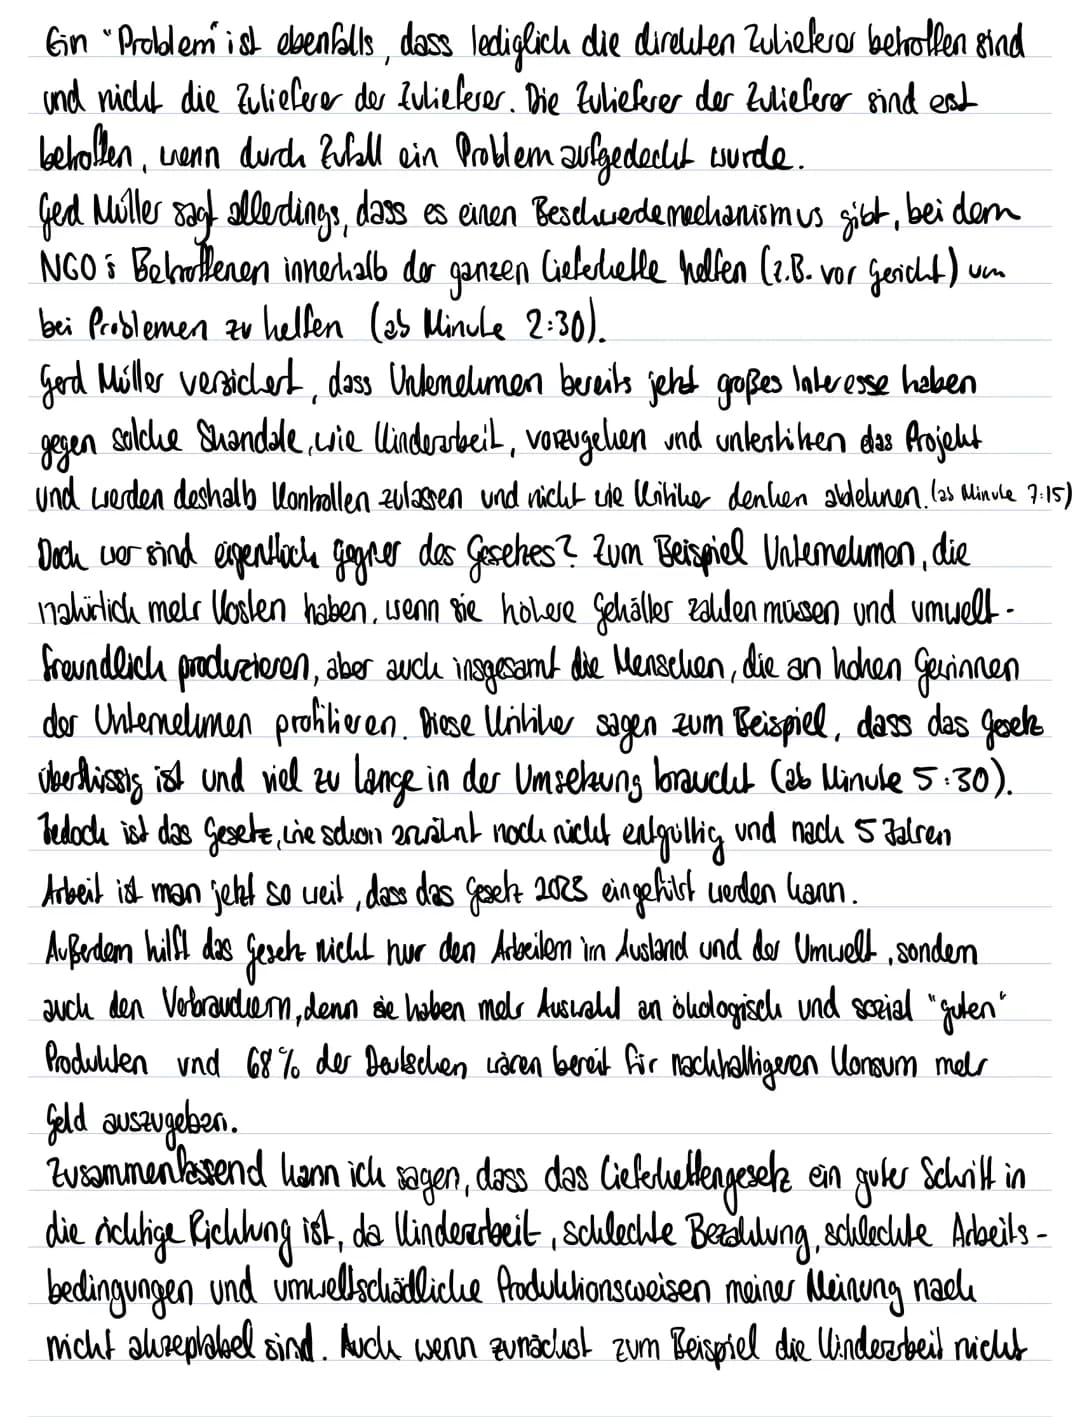 Ein "Problem" ist ebenfalls, dass lediglich die direkten Zulieferer betroffen sind
und nicht die Zulieferer der Zulieferer. Die Zulieferer der Zulieferer sind erst
betroffen, wenn durch Zufall ein Problem aufgedeckt wurde.
Gerd Müller sagt allerdings, dass es einen Beschwerdemechanismus gibt, bei dem
NGO's Betroffenen innerhalb der ganzen Lieferkette helfen (z.B. vor Gericht) um
bei Problemen zu helfen (ab Minute 2:30).
Gerd Müller versichert, dass Unternehmen bereits jetzt großes Interesse haben
gegen solche Skandale, wie Kinderarbeit, vorzugehen und unterstützen das Projekt
und werden deshalb Kontrollen zulassen und nicht wie Kritiker denken ablehnen. (ab Minute 7:15)
Doch wer sind eigentlich Gegner des Gesetzes? Zum Beispiel Unternehmen, die
natürlich mehr Kosten haben, wenn sie höhere Gehälter zahlen müssen und umwelt-
freundlich produzieren, aber auch insgesamt die Menschen, die an hohen Gewinnen
der Unternehmen profitieren. Diese Kritiker sagen zum Beispiel, dass das Gesetz
überflüssig ist und viel zu lange in der Umsetzung braucht (ab Minute 5:30).
Jedoch ist das Gesetz, wie schon erwähnt noch nicht entgültig und nach 5 Jahren
Arbeit ist man jetzt so weit, dass das Gesetz 2023 eingeführt werden kann.
Außerdem hilft das Gesetz nicht nur den Arbeitern im Ausland und der Umwelt, sondern
auch den Verbrauchern, denn sie haben mehr Auswahl an ökologisch und sozial "guten"
Produkten und 68% der Deutschen wären bereit für nachhaltigeren Konsum mehr
Geld auszugeben.
Zusammenfassend kann ich sagen, dass das Lieferkettengesetz ein guter Schritt in
die richtige Richtung ist, da Kinderarbeit, schlechte Bezahlung, schlechte Arbeits-
bedingungen und umweltschädliche Produktionsweisen meiner Meinung nach
nicht akzeptabel sind. Auch wenn zunächst zum Beispiel die Kinderarbeit nicht